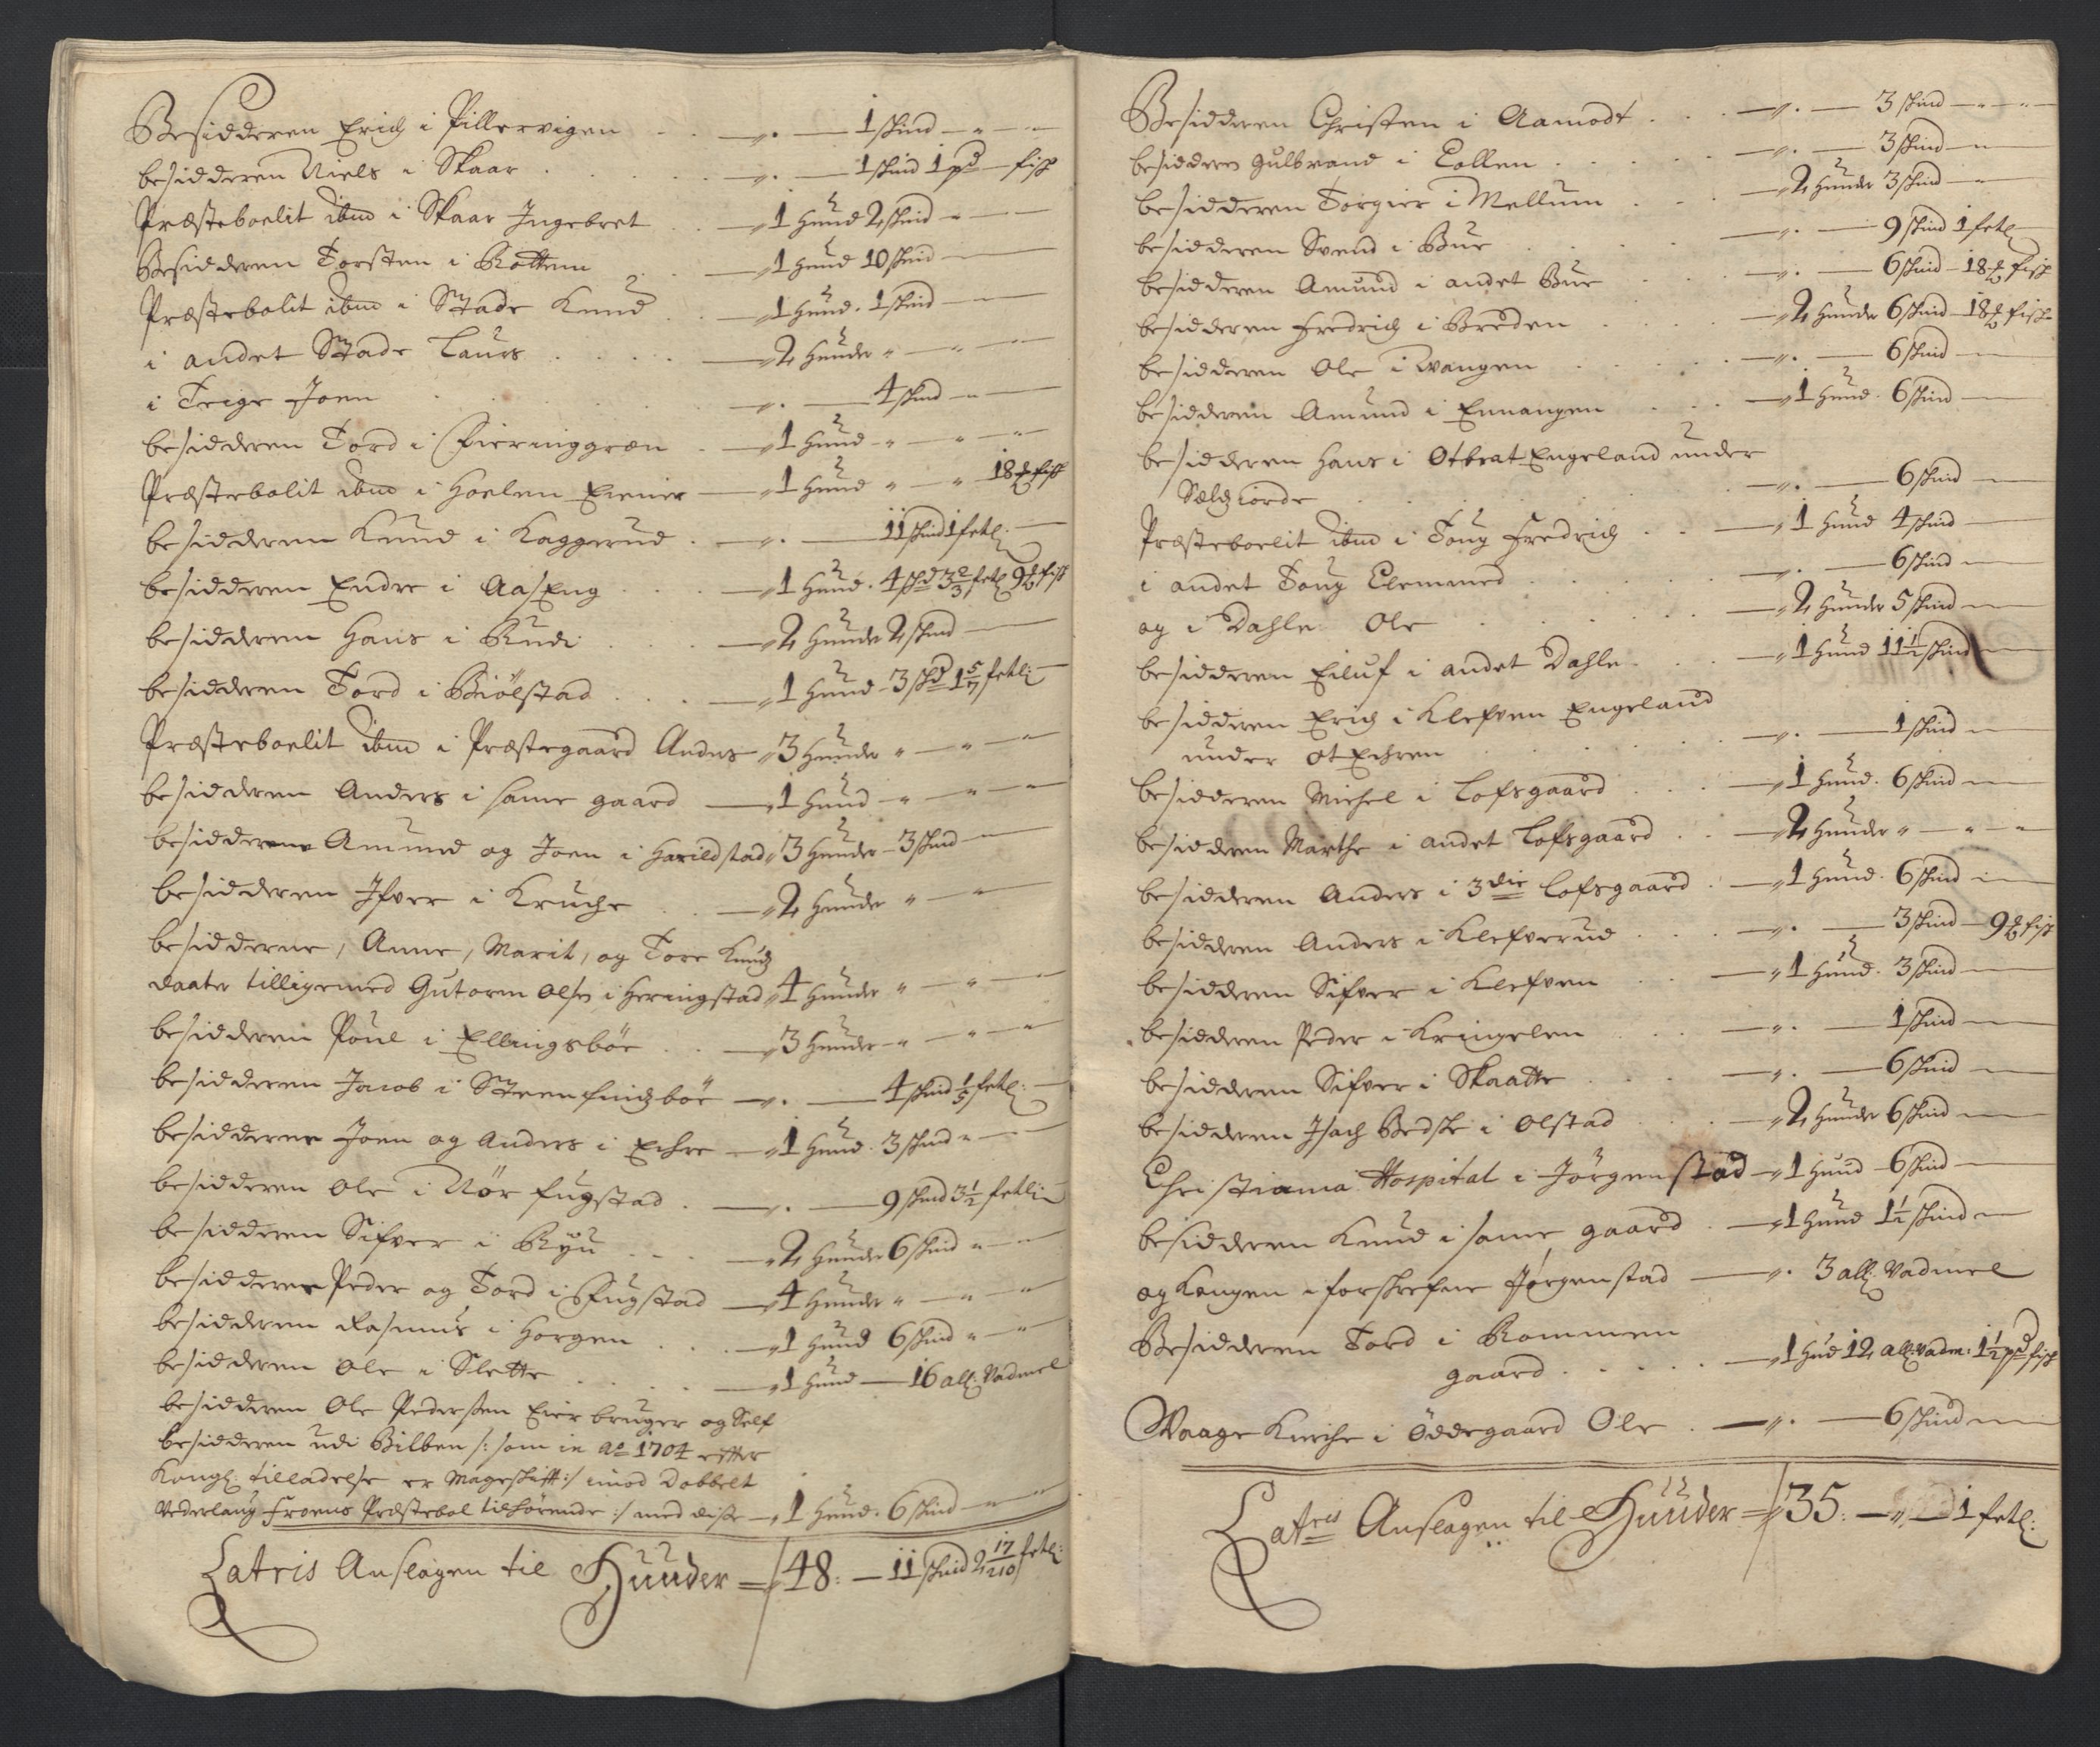 Besidderen Erich i Pillervigen - - —„. — 1 skind — „ —
besidderen Niels i Skaar . . . —„. — 1 skind 1 pd — fisk
Præsteboelit ibm i Skaar Ingebret . . —„1 Hund 2 skind „ —
Besidderen Torsten i Rottem . . —„1 Hund 10 skind —
Præstebolit ibm i Stade Knud . . —„1 Hund. 1 skind —
i andet Stade Laurs . . . . —„2 Hunder „ — „ —
i Teige Joen . . . . —„. — 4 skind „ —
besidderen Tord i Fieringgren . —„1 Hund „ — „ —
Præstebolit ibm i Hoelen Einer —„1 Hund „ — „ 18 ℔ fisk
besidderen Knud i Kaggerud . —„. — 11 skind 1 fetl: —
besidderen Endre i Aaseng . . . —„1 Hund. 4 skd 3 2/3 fetl 9 ℔ fisk
besidderen Hans i Rudi . . . —„2 Hunder 2 skind —
besidderen Tord i Biölstad . . . —„1 Hund - 3 skd 1 5/7 fetli —
Præsteboelit ibm i Præstegaard Anders „3 Hunder „ — „ —
besidderen Anders i same gaard —„1 Hund „ — „ —
besidderene Amund og Joen i Harildstad „3 Hunder - 3 skind —
besidderen Ifver i Kruche . . —„2 Hunder „ — „ —
besidderne, Anne, Marit, og Tore Knudz
daater tilligemed Gutorm Olsen i Heringstad „4 Hunder „ — „ —
besidderen Poul i Ellingsböe . . —„3 Hunder „ — „ —
besidderen Jacob i Steenfindzböe —„. — 4 skind 1/5 fetl: —
besidderne Joen og Anders i Echre —„1 Hund. 3 skind „ —
besidderen Ole i Nör fugstad . —„. — 9 skind 3 1/2 fetli —
besidderen Sifver i Ryu . . . —„2 Hunder 6 skind „ —
besidderne Peder og Tord i Fugstad —„4 Hunder „ — „ —
besidderen Rasmus i Horgen . . . —„1 Hund 6 skind „ —
besidderen Ole i Slette . . . . —„1 Hund — 16 all: Vadmel
besidderen Ole Pedersen Eier bruger og Self
besidderen udi Bilben /: som in Ao 1704 efter
Kongl: tilladelse er Mageskift :/ imod Dobbelt
Vederlaug Froens Præstebol tilhörende :/ med disse —„1 Hund. 6 skind —
Latris Anslagen til Huuder =„48: — 11 skind 2 17/210 fetl:
Besidderen Christen i Aamodt . . . —„. — 3 skind — „ —
besidderen Gulbrand i Collen . . . . —„. — 3 skind —
besidderen Torgier i Mellum . . . —„2 Hunder 3 skind —
besidderen Svend i Bue . . . . —„. — 9 skind 1 fetl —
besidderen Amund i andet Bue . . —„. — 6 skind - 18 ℔ fisk
besidderen Fredrich i Breden . . . —„2 Hunder 6 skind - 18 ℔ fisk
besidderen Ole i Wangen . . . . —„. — 6 skind —
besidderen Amund i Ennangen . . . —„1 Hund. 6 skind —
besidderen Hans i Otbrat Engeland under
Selchiorde . . . . —„. — 6 skind —
Præsteboelit ibm i Toug Fredrich . . —„1 Hund 4 skind —
i andet Toug Clemmed . . . . —„. — 6 skind —
og i Dahle Ole . . . . —„2 Hunder 5 skind —
besidderen Eiluf i andet Dahle . . . —„1 Hund 11 1/2 skind —
besidderen Erich i Klefven Engeland
under Ot Echren . . . . —„. — 1 skind —
besidderen Michel i Lofsgaard . . . —„1 Hund. 6 skind —
besidderen Marthe i andet Lofsgaard . . —„2 Hunder „ — „ —
besidderen Anders i 3die Lofsgaard . —„1 Hund. 6 skind —
besidderen Anders i Klefverud . . . —„. — 3 skind — 9 ℔ fisk
besidderen Sifver i Klefven . . . —„1 Hund. 3 skind —
besidderen Peder i Kringelen . . . —„. — 1 skind —
besidderen Sifver i Skaatte . . . . —„. — 6 skind —
besidderen Isach Bedske i Olstad . . . —„2 Hunder 6 skind —
Christiania Hospital i Jörgenstad —„1 Hund - 6 skind —
besidderen Knud i same gaard . —„1 Hund 1 1/2 skind —
og Kongen i forskrefne Jörgenstad —„. 3 all: Vadmel
Besidderen Tord i Rommen
gaard . . . . —„1 Hud 12 all: vadm: 1 1/2 pd fisk
Waage Kirche i Öddegaard Ole . —„. — 6 skind —
Latris Anslagen til Huuder =„35: — „ — 1 fetl: